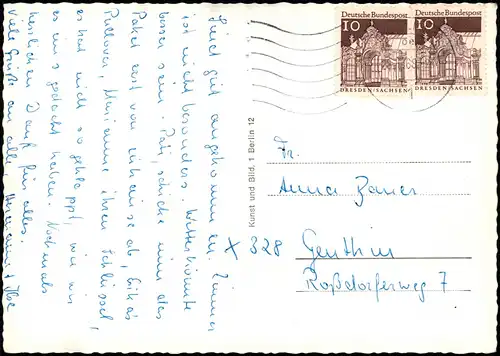 Sind gut angekommen. Zimmer
ist nicht besonders. Wetter könnte
besser sein. Päts, schicke uns das
Paket erst von zuhause ab, Erikas
Pullover, Marianne ihren Schlüssel,
es hat mich so geklappt, wie wir
es uns gedacht haben. Nochmals
herzlichen Dank für alles.
Viele Grüße an alle, Hermann & Ilse
Kunst und Bild, 1 Berlin 12
Deutsche Bundespost
10
DRESDEN/SACHSEN
Deutsche Bundespost
10
DRESDEN/SACHSEN
Fr.
Anna Bauer
X 328 Genthin
Roßdorferweg 7